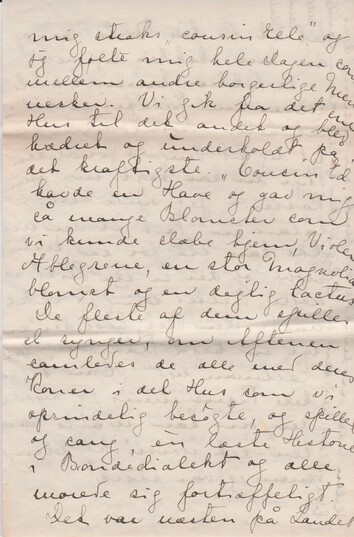 mig straks "cousin Ele" og
jeg følte mig hele dagen som
mellem andre borgerlige Men
nesker. Vi gik fra det ene
Hus til det andet og blev
hædret og underholdt på
det kraftigste. "Cousin Ed
havde en Have og gav mig
så mange Blomster som
vi kunde slæbe hjem, Violer
Ablegrene, en stor Magnolia
blomst og en dejlig Cactus
De fleste af dem spiller
el synger, om Aftenen
samledes de alle med deres
Koner i det Hus som vi
oprindelig besøgte, og spillede
og sang, en læste Historier
i Bondedialekt og alle
morede sig fortræffeligt.
Det var næsten på Landet